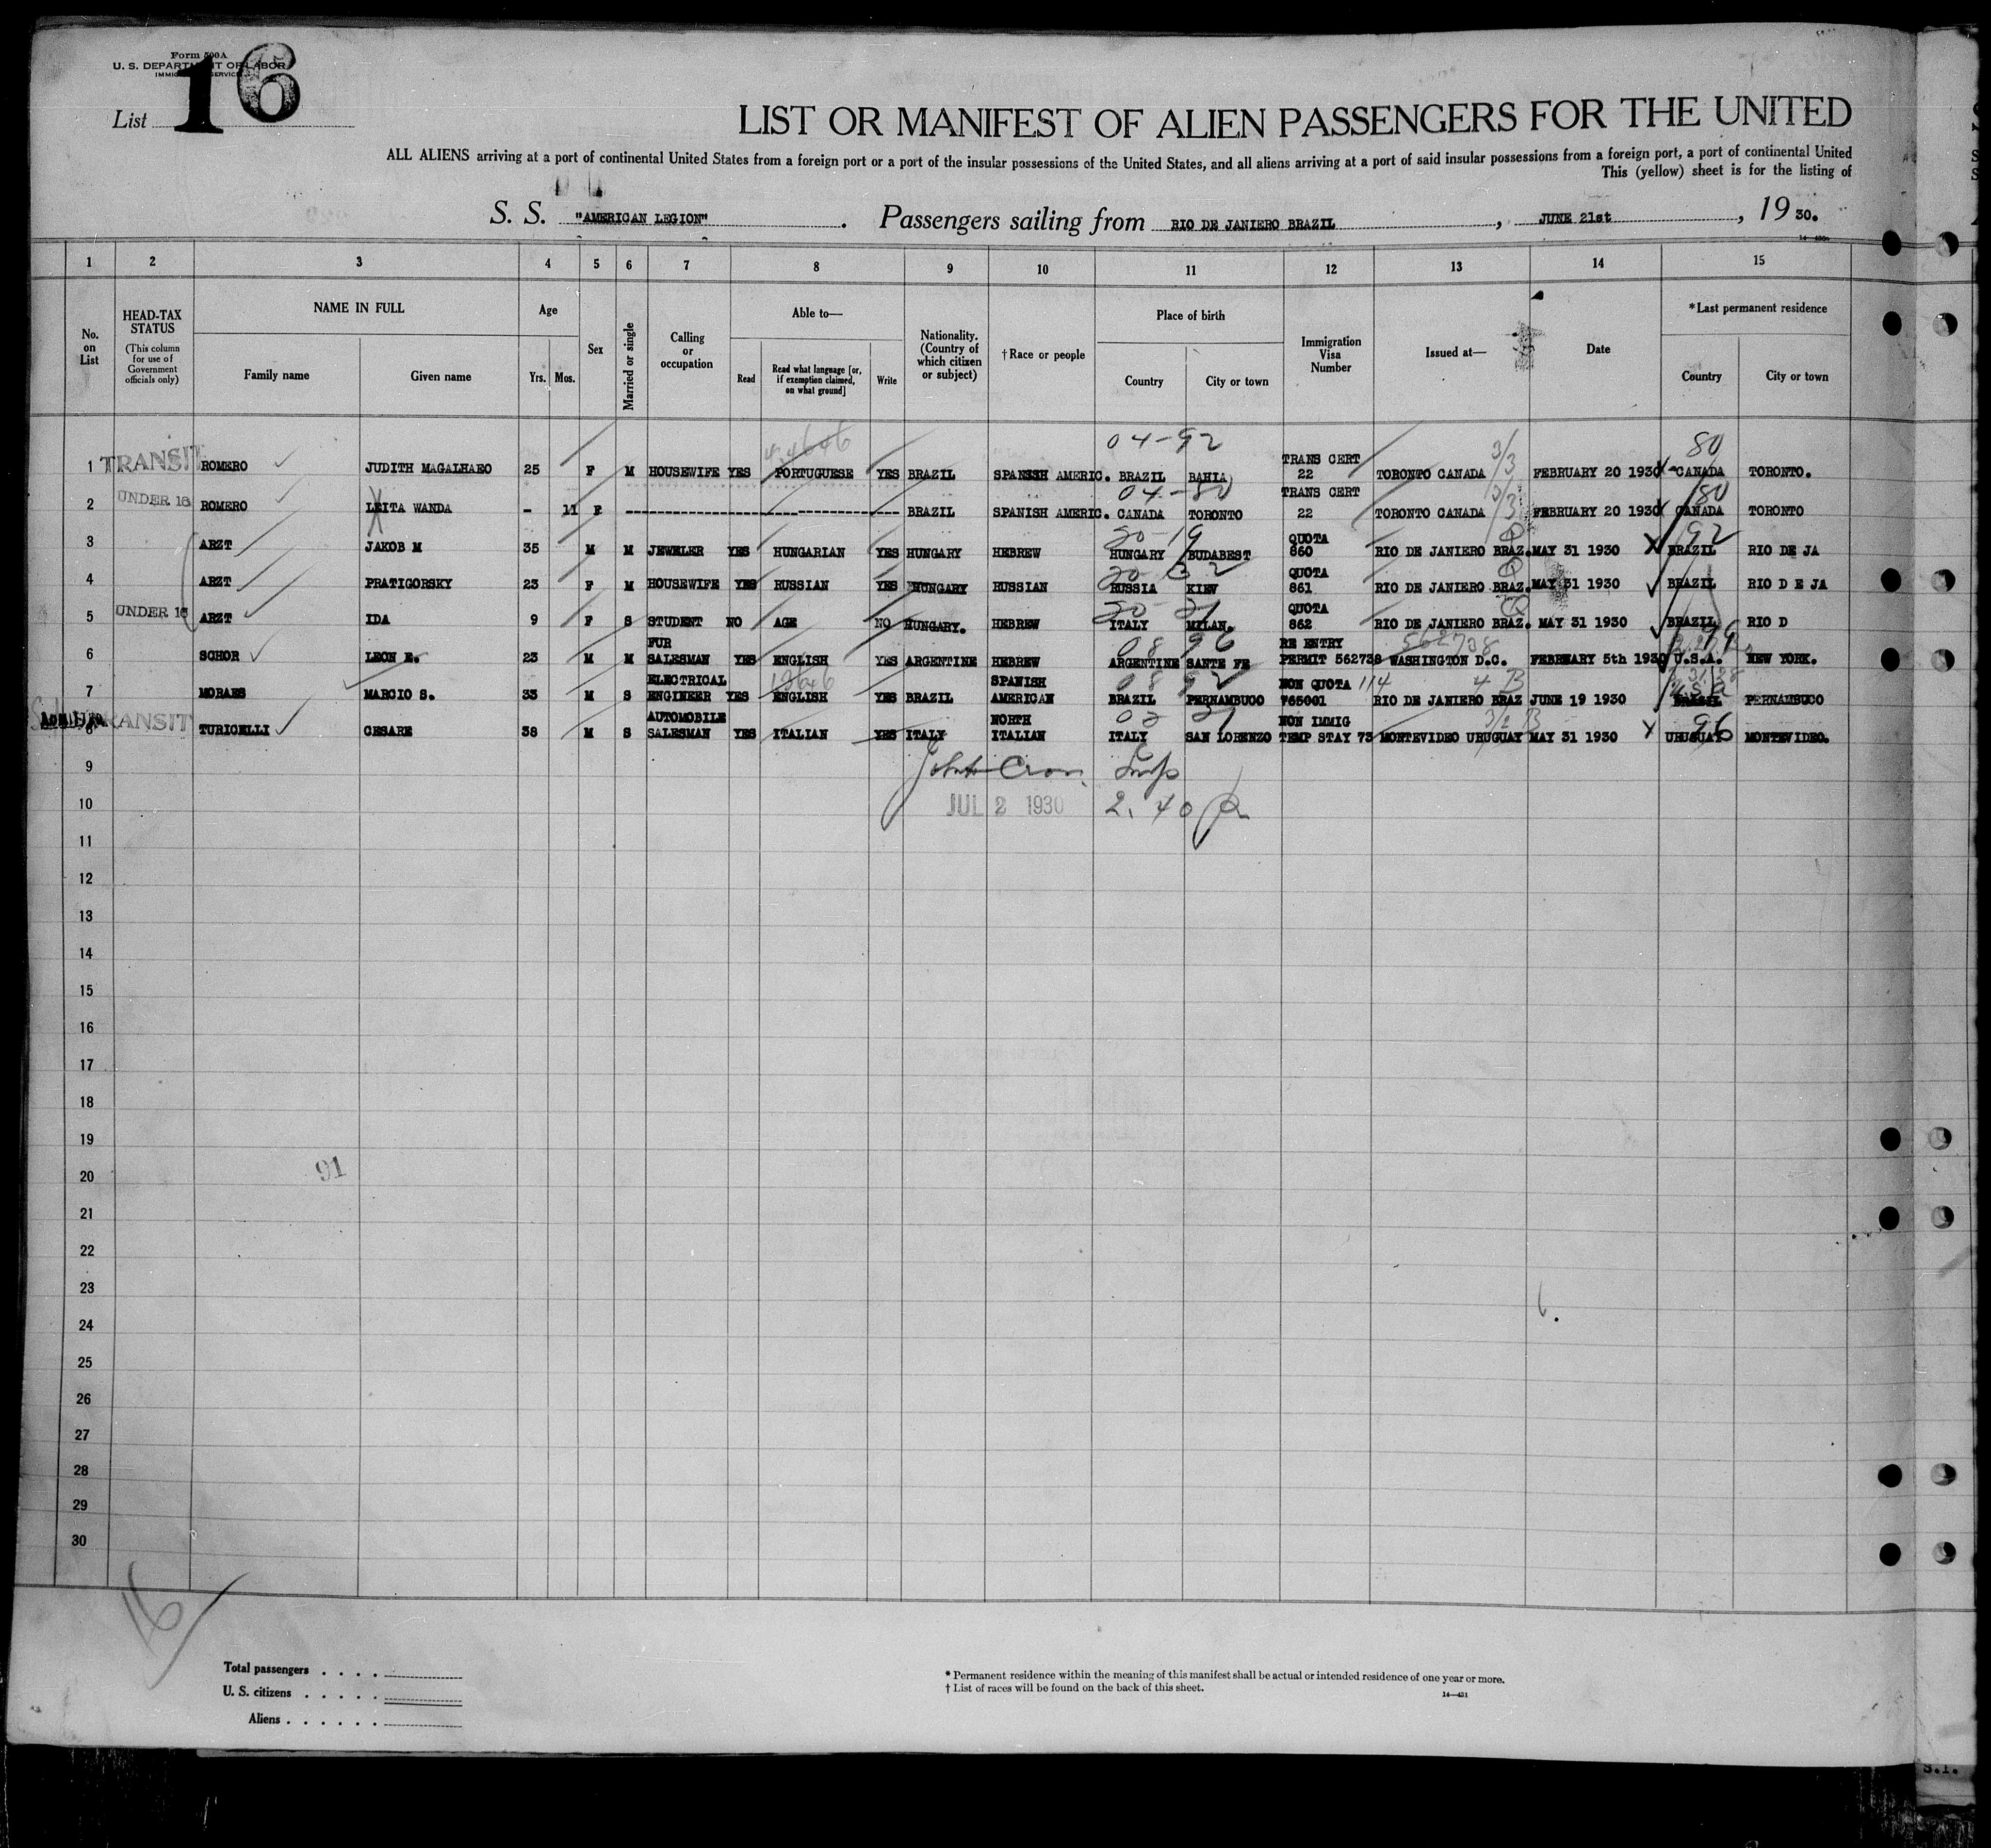 Form 500A
U. S. DEPARTMENT OF LABOR
IMMIGRATION SERVICE
List 16
LIST OR MANIFEST OF ALIEN PASSENGERS FOR THE UNITED
ALL ALIENS arriving at a port of continental United States from a foreign port or a port of the insular possessions of the United States, and all aliens arriving at a port of said insular possessions from a foreign port, a port of continental United
This (yellow) sheet is for the listing of
S. S. "AMERICAN LEGION". Passengers sailing from RIO DE JANIERO BRAZIL, JUNE 21st, 1930.
1 2 3 4 5 6 7 8 9 10 11 12 13 14 15
No. on List
HEAD-TAX STATUS
(This column for use of Government officials only)
NAME IN FULL
Family name
Given name
Age
Yrs. Mos.
Sex
Married or single
Calling or occupation
Able to—
Read
Read what language [or, if exemption claimed, on what ground]
Write
Nationality. (Country of which citizen or subject)
†Race or people
Place of birth
Country
City or town
Immigration Visa Number
Issued at—
Date
*Last permanent residence
Country
City or town
04-92 80
1 TRANSIT ROMERO JUDITH MAGALHAEO 25 F M HOUSEWIFE YES PORTUGUESE YES BRAZIL SPANISH AMERIC. BRAZIL BAHIA TRANS CERT 22 TORONTO CANADA 3/3 FEBRUARY 20 1930 CANADA TORONTO.
04-80 80
2 UNDER 16 ROMERO LEITA WANDA - 11 F BRAZIL SPANISH AMERIC. CANADA TORONTO TRANS CERT 22 TORONTO CANADA 3/3 FEBRUARY 20 1930 CANADA TORONTO
20-19 92
3 ARZT JAKOB M 35 M M JEWELER YES HUNGARIAN YES HUNGARY HEBREW HUNGARY BUDABEST QUOTA 860 RIO DE JANIERO BRAZ. MAY 31 1930 BRAZIL RIO DE JA
4 ARZT PRATIGORSKY 23 F M HOUSEWIFE YES RUSSIAN YES HUNGARY RUSSIAN RUSSIA KIEV QUOTA 861 RIO DE JANIERO BRAZ. MAY 31 1930 BRAZIL RIO D E JA
5 UNDER 16 ARZT IDA 9 F S STUDENT NO AGE NO HUNGARY. HEBREW ITALY MILAN. QUOTA 862 RIO DE JANIERO BRAZ. MAY 31 1930 BRAZIL RIO D
08 96 562738
6 SCHOR LEON E. 23 M M FUR SALESMAN YES ENGLISH YES ARGENTINE HEBREW ARGENTINE SANTE FE RE ENTRY PERMIT 562738 WASHINGTON D.C. FEBRUARY 5th 1930 U.S.A. NEW YORK.
7 MORAES MARCIO S. 33 M S ELECTRICAL ENGINEER YES ENGLISH YES BRAZIL SPANISH AMERICAN BRAZIL PERNAMBUCO NON QUOTA 765001 RIO DE JANIERO BRAZ JUNE 19 1930 BRAZIL PERNAMBUCO
8 TRANSIT TURICELLI CESARE 38 M S AUTOMOBILE SALESMAN YES ITALIAN YES ITALY NORTH ITALIAN ITALY SAN LORENZO NON IMMIG TEMP STAY 73 MONTEVIDEO URUGUAY MAY 31 1930 URUGUAY MONTEVIDEO.
9
10 JUL 2 1930 2.40
11
12
13
14
15
16
17
18
19
20 91
21
22
23
24
25
26
27
28
29
30
16
Total passengers . . . .
U. S. citizens . . . . .
Aliens . . . . . .
* Permanent residence within the meaning of this manifest shall be actual or intended residence of one year or more.
† List of races will be found on the back of this sheet.
14—431
S.I.